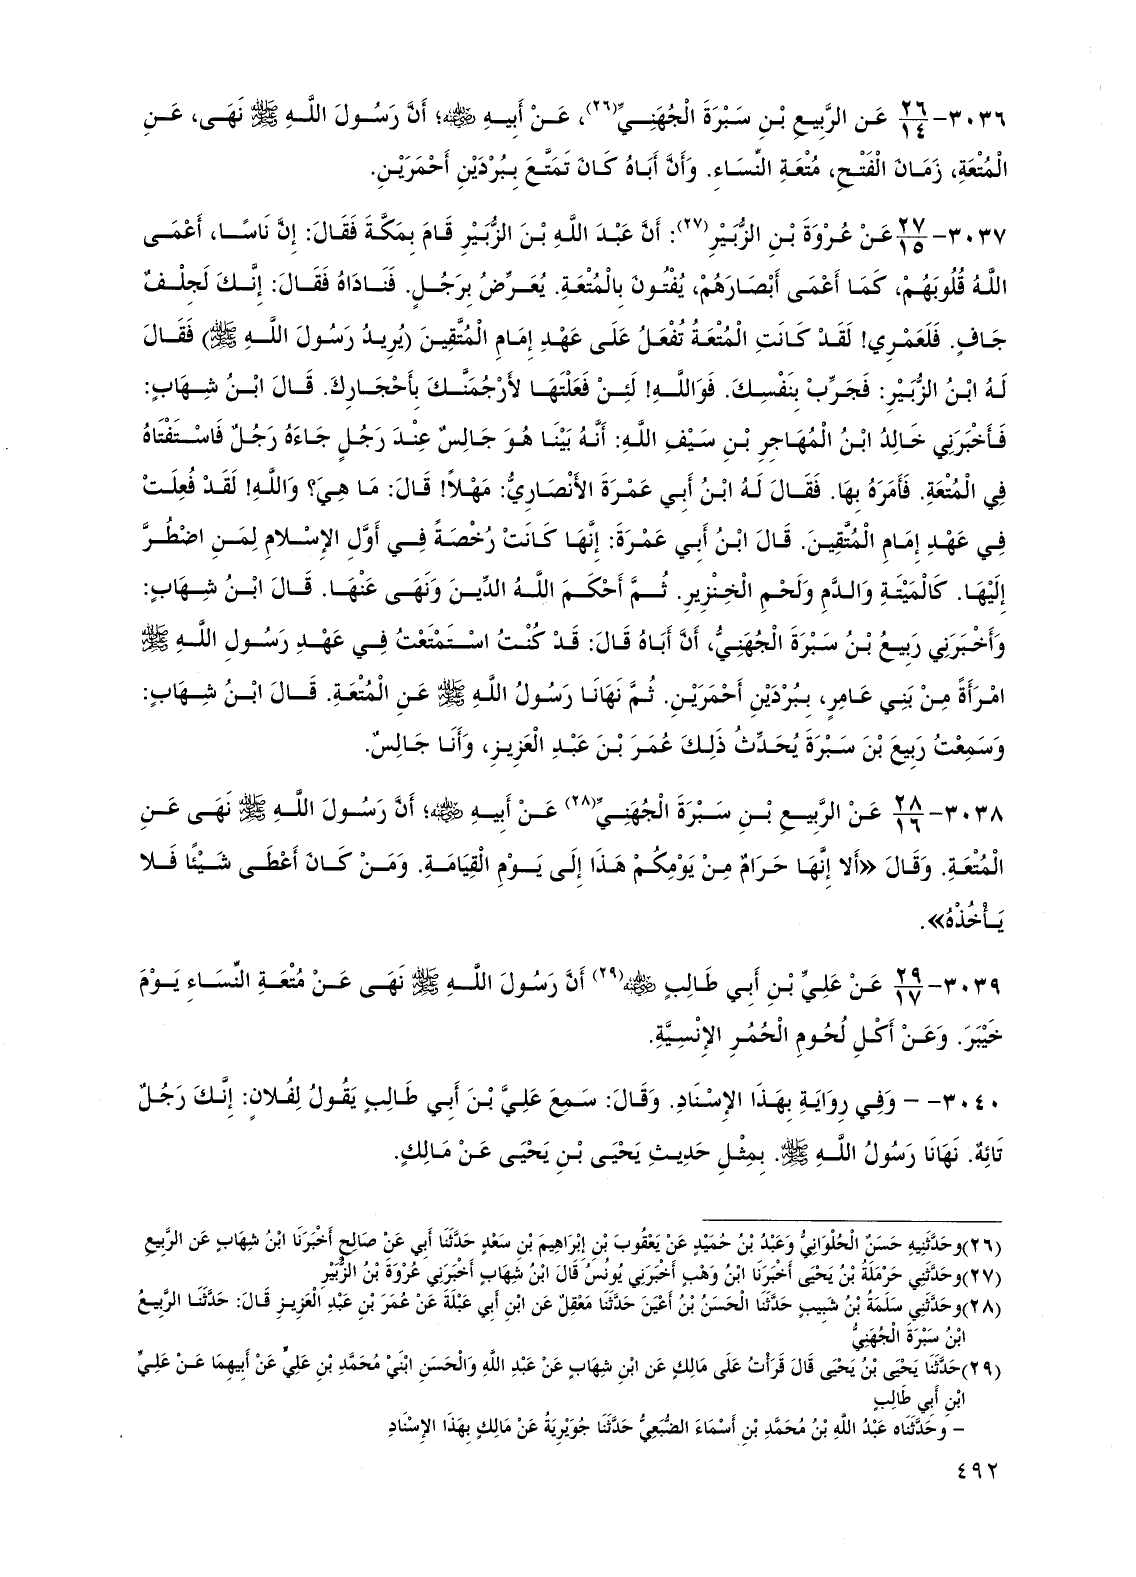 ٣٠٣٦- ٢٦/١٤ عَنِ الرَّبِيعِ بْنِ سَبْرَةَ الْجُهَنِيِّ(٢٦)، عَنْ أَبِيهِ ﵁؛ أَنَّ رَسُولَ اللَّهِ ﷺ نَهَى، عَنِ
الْمُتْعَةِ، زَمَانَ الْفَتْحِ، مُتْعَةِ النِّسَاءِ. وَأَنَّ أَبَاهُ كَانَ تَمَتَّعَ بِبُرْدَيْنِ أَحْمَرَيْنِ.
٣٠٣٧- ٢٧/١٥ عَنْ عُرْوَةَ بْنِ الزُّبَيْرِ(٢٧): أَنَّ عَبْدَ اللَّهِ بْنَ الزُّبَيْرِ قَامَ بِمَكَّةَ فَقَالَ: إِنَّ نَاسًا، أَعْمَى
اللَّهُ قُلُوبَهُمْ، كَمَا أَعْمَى أَبْصَارَهُمْ، يُفْتُونَ بِالْمُتْعَةِ. يُعَرِّضُ بِرَجُلٍ. فَنَادَاهُ فَقَالَ: إِنَّكَ لَجِلْفٌ
جَافٍ. فَلَعَمْرِي! لَقَدْ كَانَتِ الْمُتْعَةُ تُفْعَلُ عَلَى عَهْدِ إِمَامِ الْمُتَّقِينَ (يُرِيدُ رَسُولَ اللَّهِ ﷺ) فَقَالَ
لَهُ ابْنُ الزُّبَيْرِ: فَجَرِّبْ بِنَفْسِكَ. فَوَاللَّهِ! لَئِنْ فَعَلْتَهَا لأَرْجُمَنَّكَ بِأَحْجَارِكَ. قَالَ ابْنُ شِهَابٍ:
فَأَخْبَرَنِي خَالِدُ ابْنُ الْمُهَاجِرِ بْنِ سَيْفِ اللَّهِ: أَنَّهُ بَيْنَا هُوَ جَالِسٌ عِنْدَ رَجُلٍ جَاءَهُ رَجُلٌ فَاسْتَفْتَاهُ
فِي الْمُتْعَةِ. فَأَمَرَهُ بِهَا. فَقَالَ لَهُ ابْنُ أَبِي عَمْرَةَ الأَنْصَارِيُّ: مَهْلاً! قَالَ: مَا هِيَ؟ وَاللَّهِ! لَقَدْ فُعِلَتْ
فِي عَهْدِ إِمَامِ الْمُتَّقِينَ. قَالَ ابْنُ أَبِي عَمْرَةَ: إِنَّهَا كَانَتْ رُخْصَةً فِي أَوَّلِ الإِسْلامِ لِمَنِ اضْطُرَّ
إِلَيْهَا. كَالْمَيْتَةِ وَالدَّمِ وَلَحْمِ الْخِنْزِيرِ. ثُمَّ أَحْكَمَ اللَّهُ الدِّينَ وَنَهَى عَنْهَا. قَالَ ابْنُ شِهَابٍ:
وَأَخْبَرَنِي رَبِيعُ بْنُ سَبْرَةَ الْجُهَنِيُّ، أَنَّ أَبَاهُ قَالَ: قَدْ كُنْتُ اسْتَمْتَعْتُ فِي عَهْدِ رَسُولِ اللَّهِ ﷺ
امْرَأَةً مِنْ بَنِي عَامِرٍ، بِبُرْدَيْنِ أَحْمَرَيْنِ. ثُمَّ نَهَانَا رَسُولُ اللَّهِ ﷺ عَنِ الْمُتْعَةِ. قَالَ ابْنُ شِهَابٍ:
وَسَمِعْتُ رَبِيعَ بْنَ سَبْرَةَ يُحَدِّثُ ذَلِكَ عُمَرَ بْنَ عَبْدِ الْعَزِيزِ، وَأَنَا جَالِسٌ.
٣٠٣٨- ٢٨/١٦ عَنْ الرَّبِيعِ بْنِ سَبْرَةَ الْجُهَنِيِّ(٢٨) عَنْ أَبِيهِ ﵁؛ أَنَّ رَسُولَ اللَّهِ ﷺ نَهَى عَنِ
الْمُتْعَةِ. وَقَالَ «أَلا إِنَّهَا حَرَامٌ مِنْ يَوْمِكُمْ هَذَا إِلَى يَوْمِ الْقِيَامَةِ. وَمَنْ كَانَ أَعْطَى شَيْئًا فَلا
يَأْخُذْهُ».
٣٠٣٩- ٢٩/١٧ عَنْ عَلِيِّ بْنِ أَبِي طَالِبٍ ﵁(٢٩) أَنَّ رَسُولَ اللَّهِ ﷺ نَهَى عَنْ مُتْعَةِ النِّسَاءِ يَوْمَ
خَيْبَرَ. وَعَنْ أَكْلِ لُحُومِ الْحُمُرِ الإِنْسِيَّةِ.
٣٠٤٠- – وَفِي رِوَايَةٍ بِهَذَا الإِسْنَادِ. وَقَالَ: سَمِعَ عَلِيَّ بْنَ أَبِي طَالِبٍ يَقُولُ لِفُلانٍ: إِنَّكَ رَجُلٌ
تَائِهٌ. نَهَانَا رَسُولُ اللَّهِ ﷺ. بِمِثْلِ حَدِيثِ يَحْيَى بْنِ يَحْيَى عَنْ مَالِكٍ.
(٢٦)وحَدَّثَنِيهِ حَسَنٌ الْحُلْوَانِيُّ وَعَبْدُ بْنُ حُمَيْدٍ عَنْ يَعْقُوبَ بْنِ إِبْرَاهِيمَ بْنِ سَعْدٍ حَدَّثَنَا أَبِي عَنْ صَالِحٍ أَخْبَرَنَا ابْنُ شِهَابٍ عَنِ الرَّبِيعِ
(٢٧)وحَدَّثَنِي حَرْمَلَةُ بْنُ يَحْيَى أَخْبَرَنَا ابْنُ وَهْبٍ أَخْبَرَنِي يُونُسُ قَالَ ابْنُ شِهَابٍ أَخْبَرَنِي عُرْوَةُ بْنُ الزُّبَيْرِ
(٢٨)وحَدَّثَنِي سَلَمَةُ بْنُ شَبِيبٍ حَدَّثَنَا الْحَسَنُ بْنُ أَعْيَنَ حَدَّثَنَا مَعْقِلٌ عَنِ ابْنِ أَبِي عَبْلَةَ عَنْ عُمَرَ بْنِ عَبْدِ الْعَزِيزِ قَالَ: حَدَّثَنَا الرَّبِيعُ
ابْنُ سَبْرَةَ الْجُهَنِيُّ
(٢٩)حَدَّثَنَا يَحْيَى بْنُ يَحْيَى قَالَ قَرَأْتُ عَلَى مَالِكٍ عَنِ ابْنِ شِهَابٍ عَنْ عَبْدِ اللَّهِ وَالْحَسَنِ ابْنَيْ مُحَمَّدِ بْنِ عَلِيٍّ عَنْ أَبِيهِمَا عَنْ عَلِيِّ
ابْنِ أَبِي طَالِبٍ
– وحَدَّثَنَاه عَبْدُ اللَّهِ بْنُ مُحَمَّدِ بْنِ أَسْمَاءَ الضُّبَعِيُّ حَدَّثَنَا جُوَيْرِيَةُ عَنْ مَالِكٍ بِهَذَا الإِسْنَادِ
٤٩٢